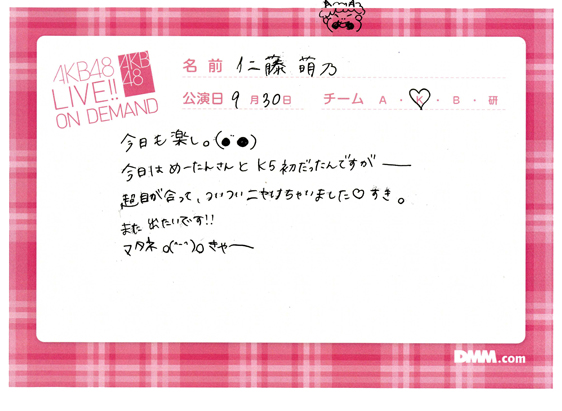 AKB48
LIVE!!
ON DEMAND
AKB
48
名前 仁藤萌乃
公演日 9月30日 チーム A・K・B・研
今日も楽し。(●¨●)
今日はめーたんさんとK5初だったんですがー
超目が合って、ついついニヤけちゃいました♡すき。
また出たいです!!
マタネo(^-^)oきゃー
DMM.com